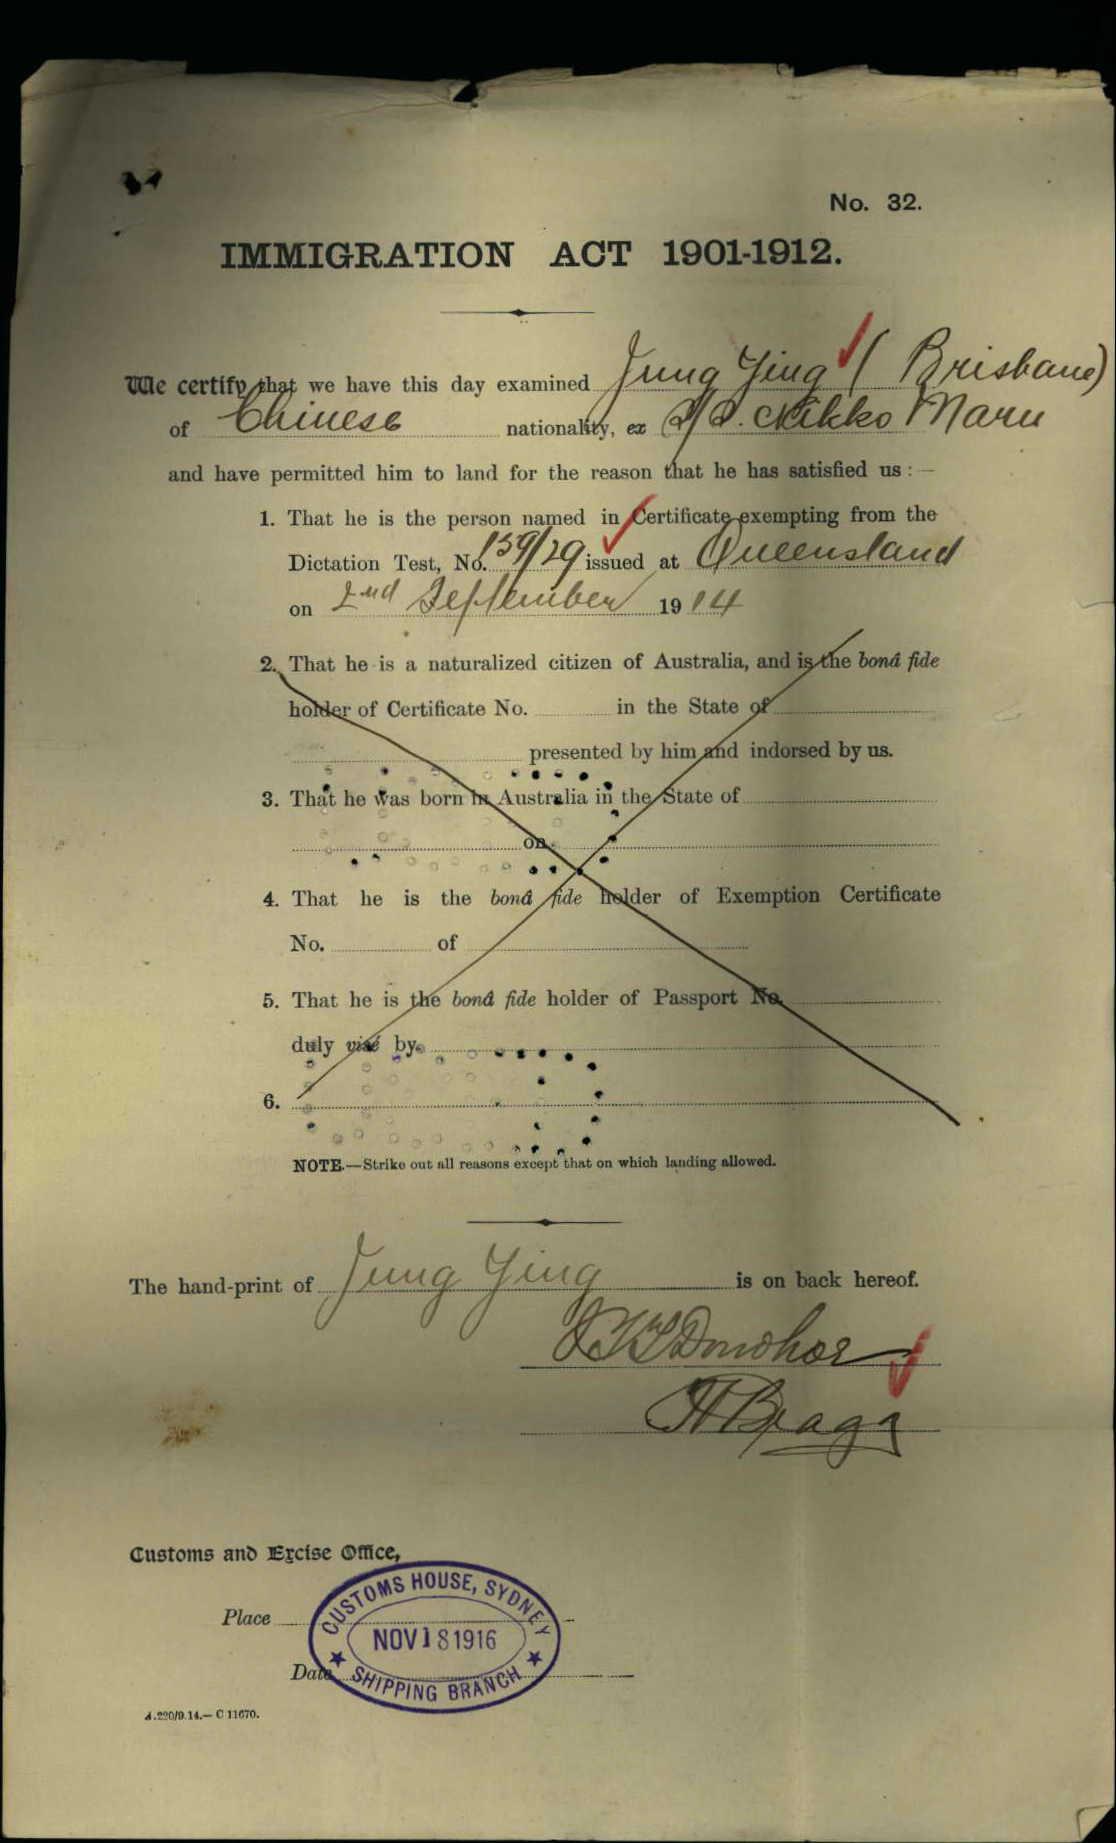 No. 32.
IMMIGRATION ACT 1901-1912.
We certify that we have this day examined Jung Ying (Brisbane)
of Chinese nationality, ex S/S. Nikko Maru
and have permitted him to land for the reason that he has satisfied us :—
1. That he is the person named in Certificate exempting from the
Dictation Test, No. 139/29 issued at Queensland
on 2nd September 1914
2. That he is a naturalized citizen of Australia, and is the bonâ fide
holder of Certificate No. in the State of
presented by him and indorsed by us.
3. That he was born in Australia in the State of
on
4. That he is the bonâ fide holder of Exemption Certificate
No. of
5. That he is the bonâ fide holder of Passport No.
duly visé by
6.
NOTE.—Strike out all reasons except that on which landing allowed.
The hand-print of Jung Ying is on back hereof.
Donohoe
Bragg
Customs and Excise Office,
Place
CUSTOMS HOUSE, SYDNEY
NOV 18 1916
SHIPPING BRANCH
Date
A.220/9.14.—C 11670.